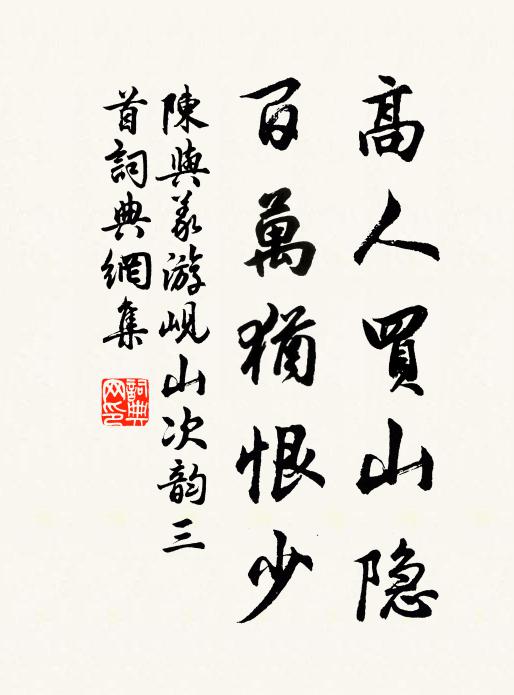 高人買山隐
百萬猶恨少
陳與義游峴山次韵三
首詞典網集
詞典网印